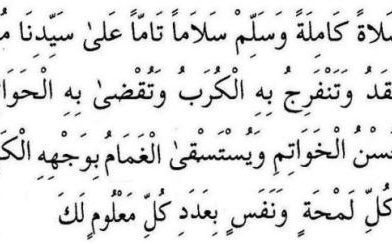 صَلاةً كَامِلَةً وَسَلِّمْ سَلَاماً تَامّاً عَلىٰ سَيِّدِنَا
وَتَنْفَرِجُ بِهِ الْكُرَبُ وَتُقْضىٰ بِهِ
الْخَوَاتِمِ وَيُسْتَسْقىٰ الْغَمَامُ بِوَجْهِهِ
كُلِّ لَمْحَةٍ وَنَفَسٍ بِعَدَدِ كُلِّ مَعْلُومٍ لَكَ